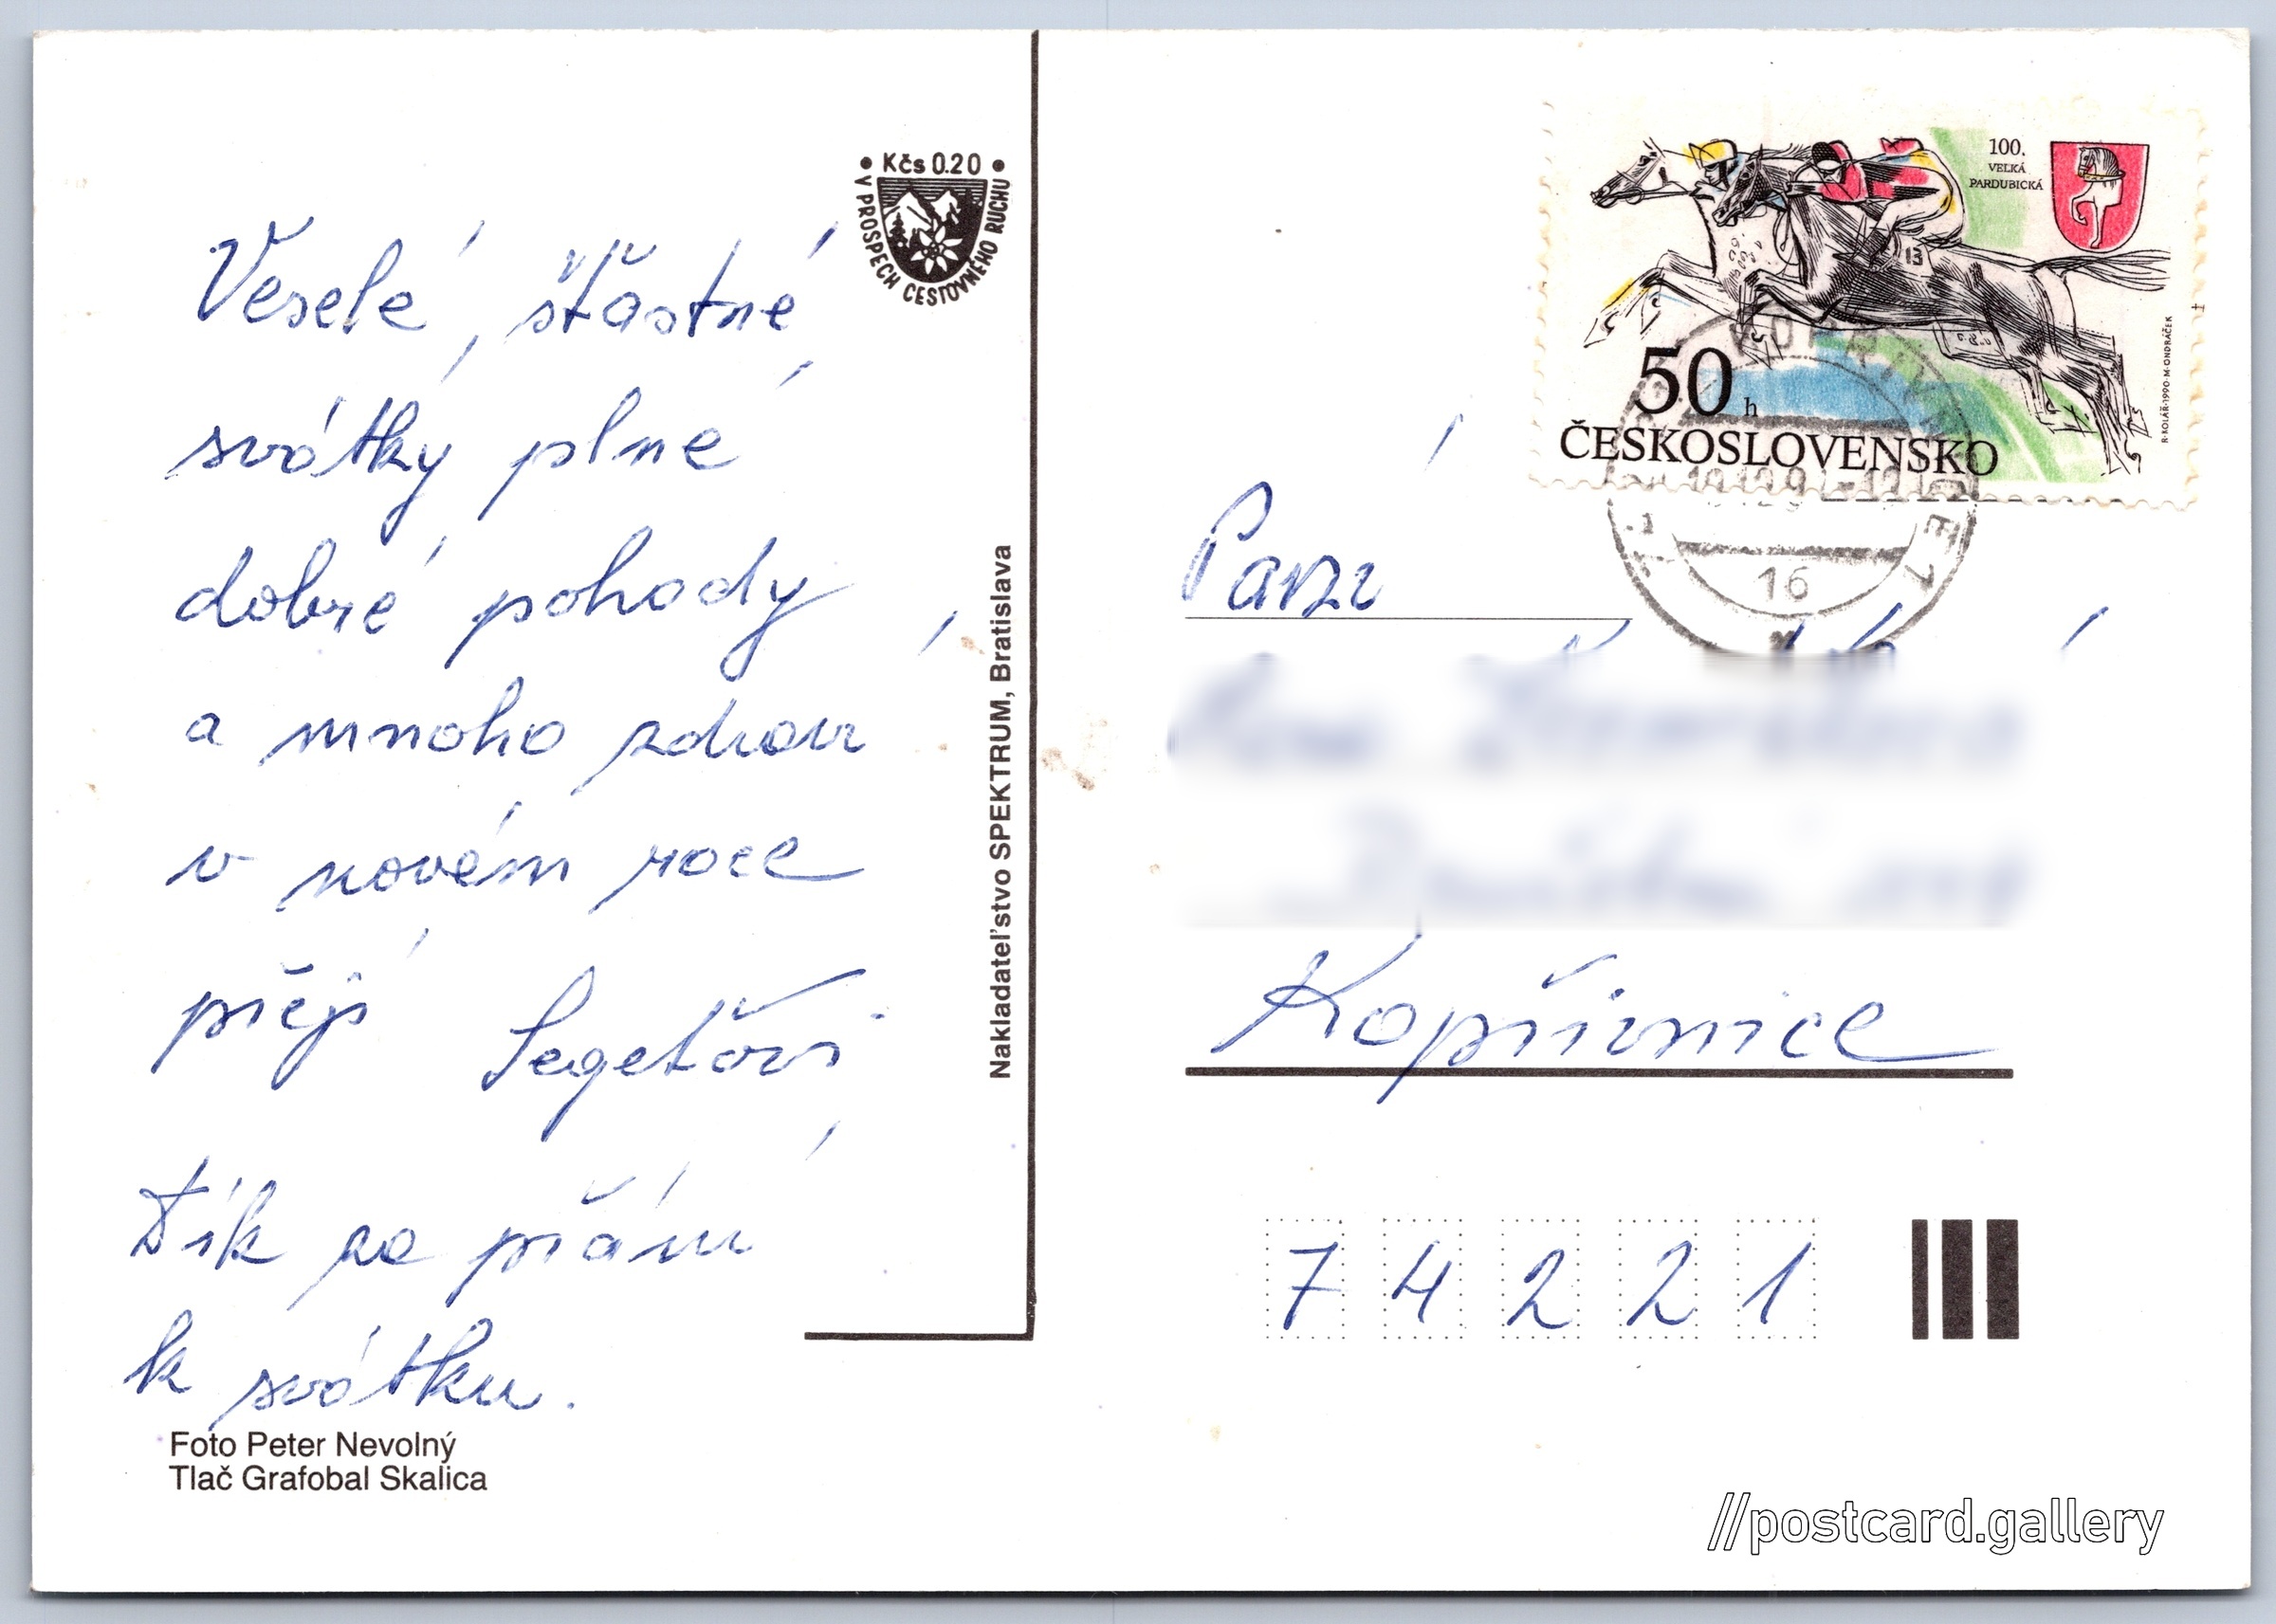 Veselé, šťastné
svátky plné
dobré pohody
a mnoho zdraví
v novém roce
přejí Segeťovi
Dík za přání
k svátku.
Foto Peter Nevolný
Tlač Grafobal Skalica
• Kčs 0.20 •
V PROSPECH CESTOVNÉHO RUCHU
Nakladateľstvo SPEKTRUM, Bratislava
100.
VELKÁ
PARDUBICKÁ
13
50 h
ČESKOSLOVENSKO
R. KOLÁŘ·1990·M. ONDRÁČEK
16
Paní
Kopřivnice
74221
//postcard.gallery